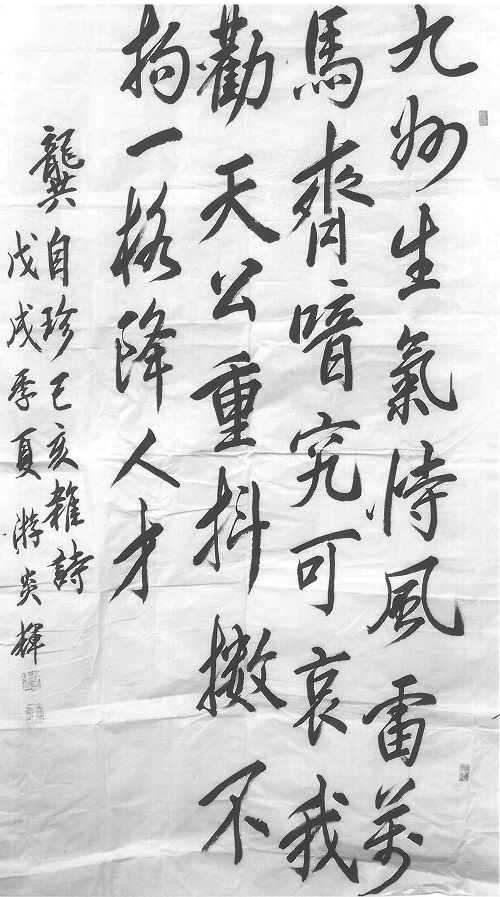 九州生氣恃風雷萬
馬齊喑究可哀我
勸天公重抖擻不
拘一格降人才
龔自珍己亥雜詩
戊戌季夏 游炎輝